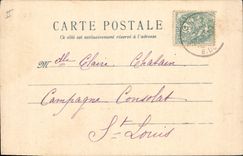 CARTE POSTALE
Ce côté est exclusivement réservé à l'adresse
Mlle Claire Chatain
Campagne Consolat
St Louis